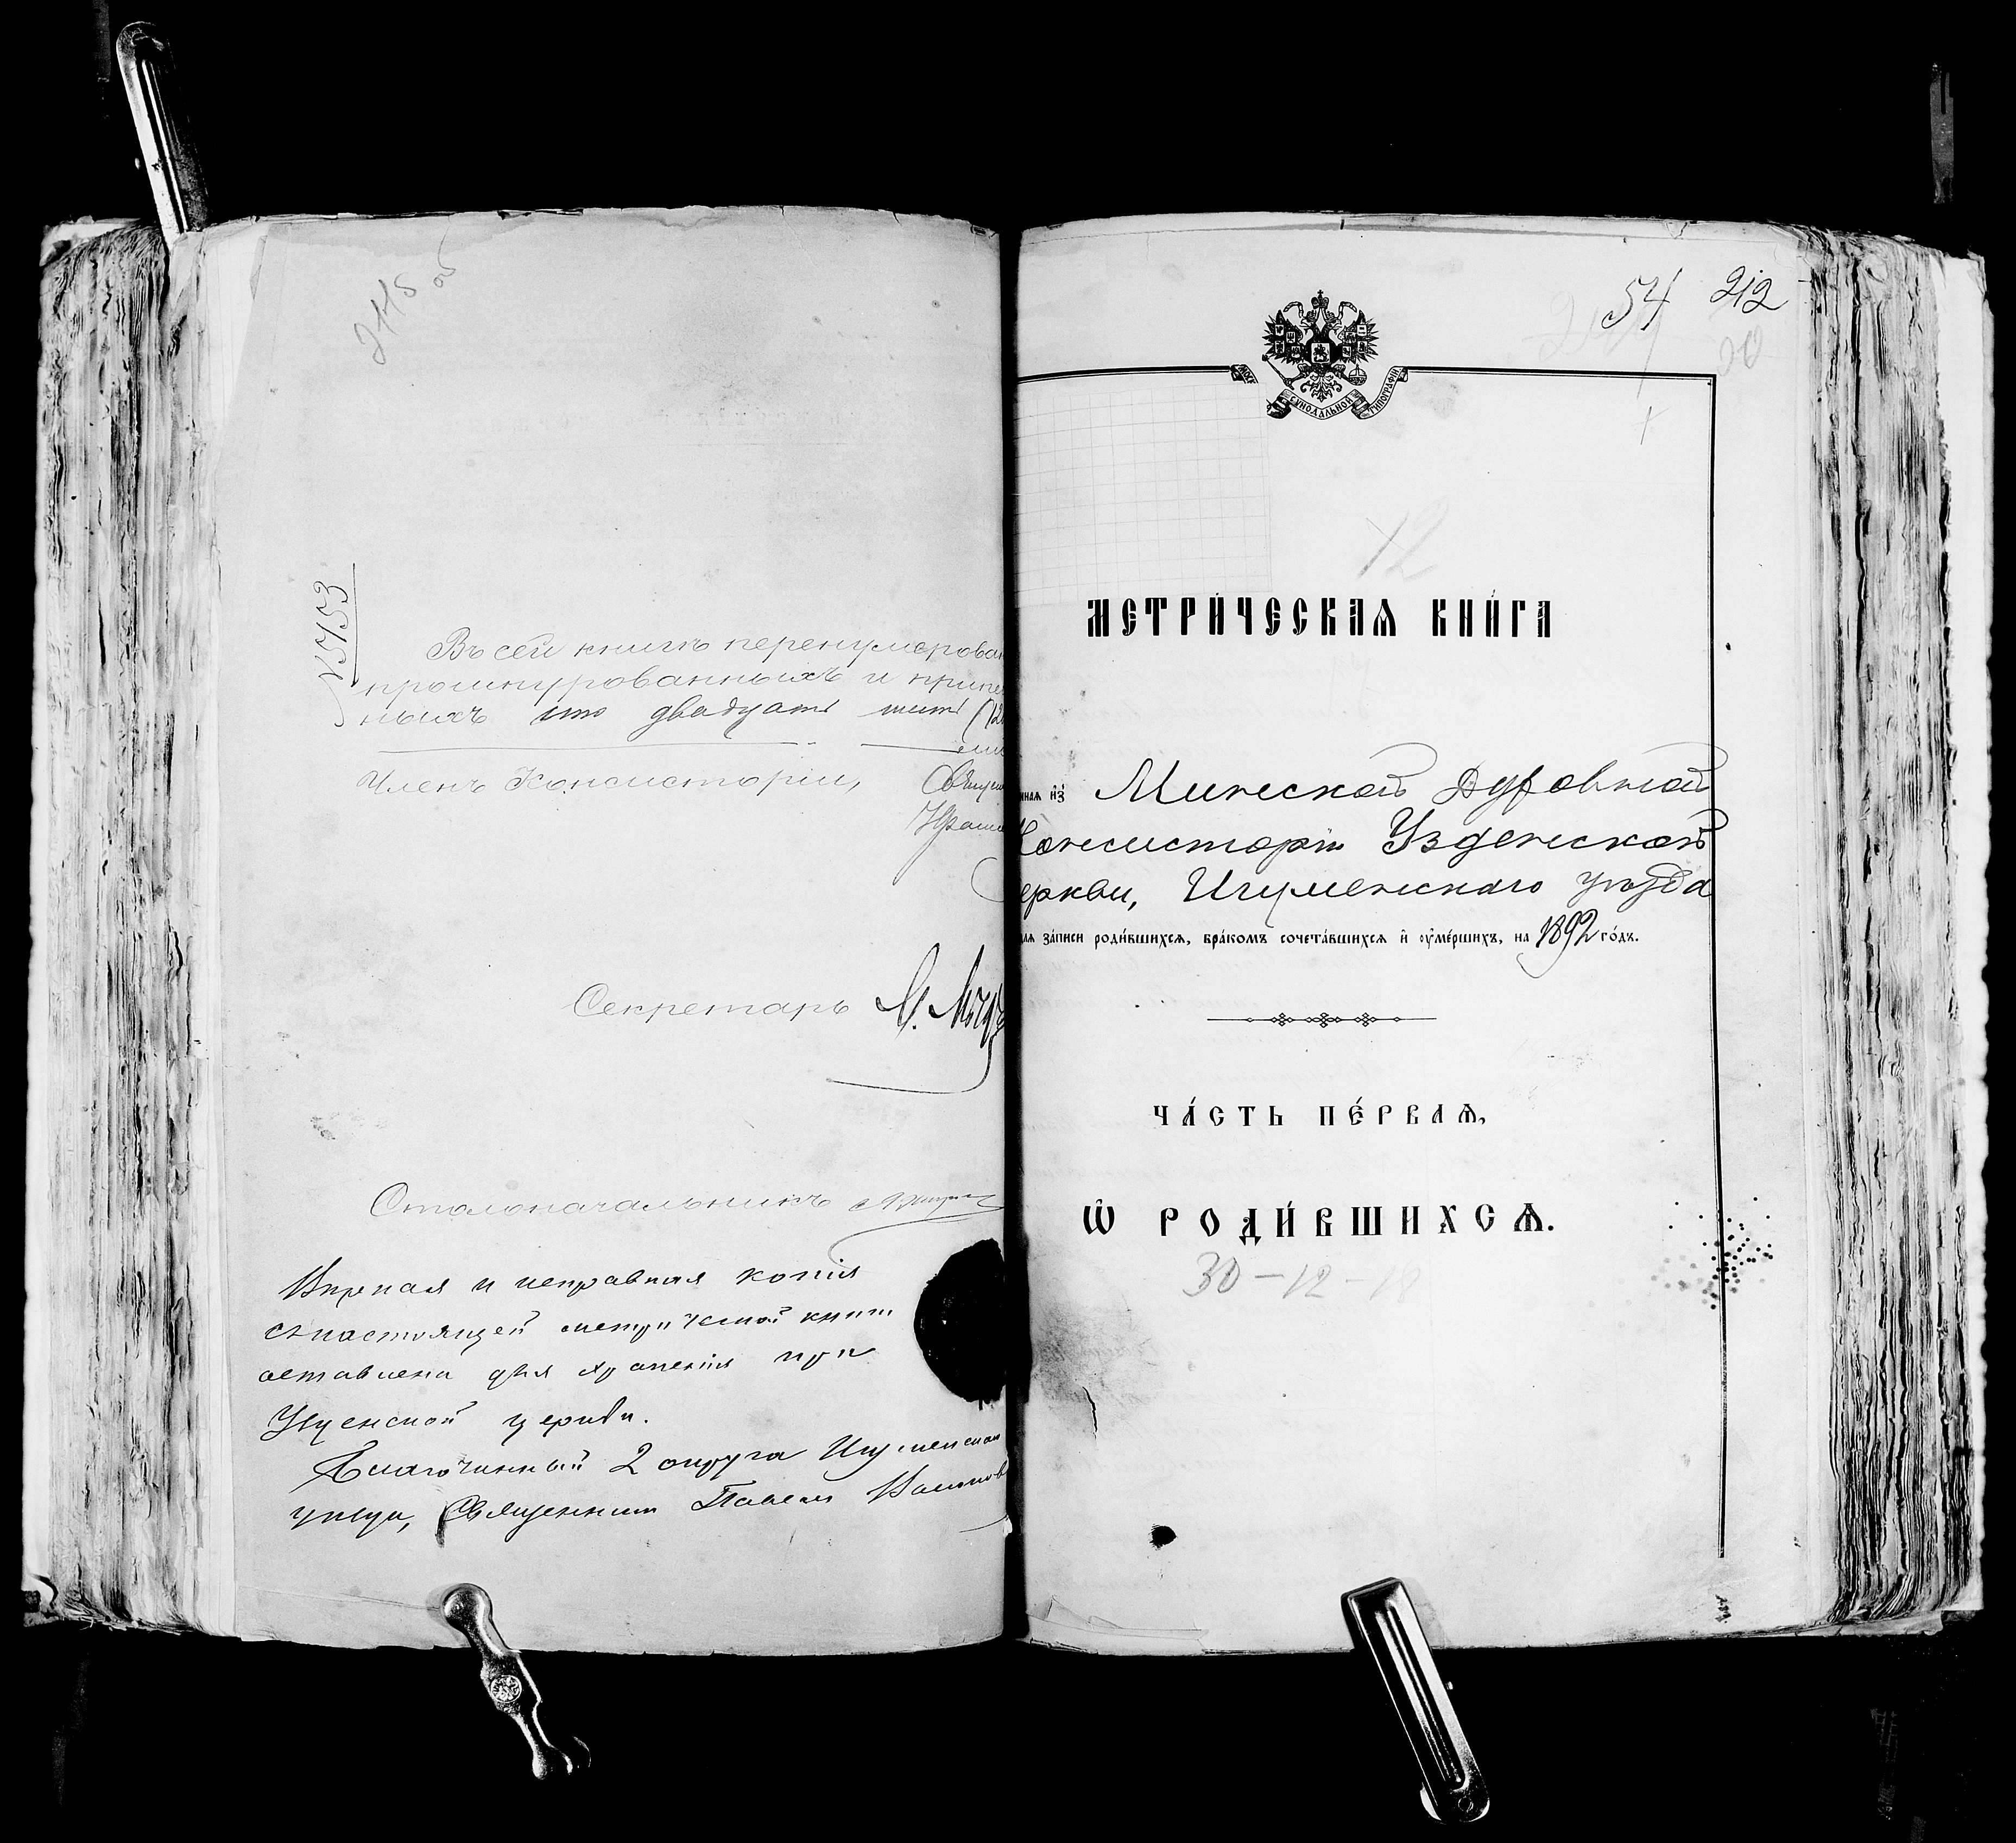 № 5153
Въ сей книгѣ перенумерован
прошнурованныхъ и припе
ныхъ сто двадцать шесть (12
Членъ Консисторіи, Священ
Секретарь
Столоначальникъ
Вѣрная и исправная копія
съ настоящей метрической книги
оставлена для храненія при
церкви.
Благочинный 2 округа Игуменскаго
уѣзда, Священникъ Павелъ
54 212
СѴНОДАЛЬНОЙ ТИПОГРАФІИ
12
МЕТРИ́ЧЕСКАѦ КНИ́ГА
нная и҆з̾ Минской Духовной
Консисторіи Узденской
еркви, Игуменскаго уѣзда
для за́писи роди́вшихсѧ, бра́комъ сочета́вшихсѧ и҆ ᲂу҆ме́ршихъ, на 1892 го́дъ.
ЧА́СТЬ ПЕ́РВАѦ,
Ѡ҆ РОДИ́ВШИХСѦ.
30 – 12 – 18